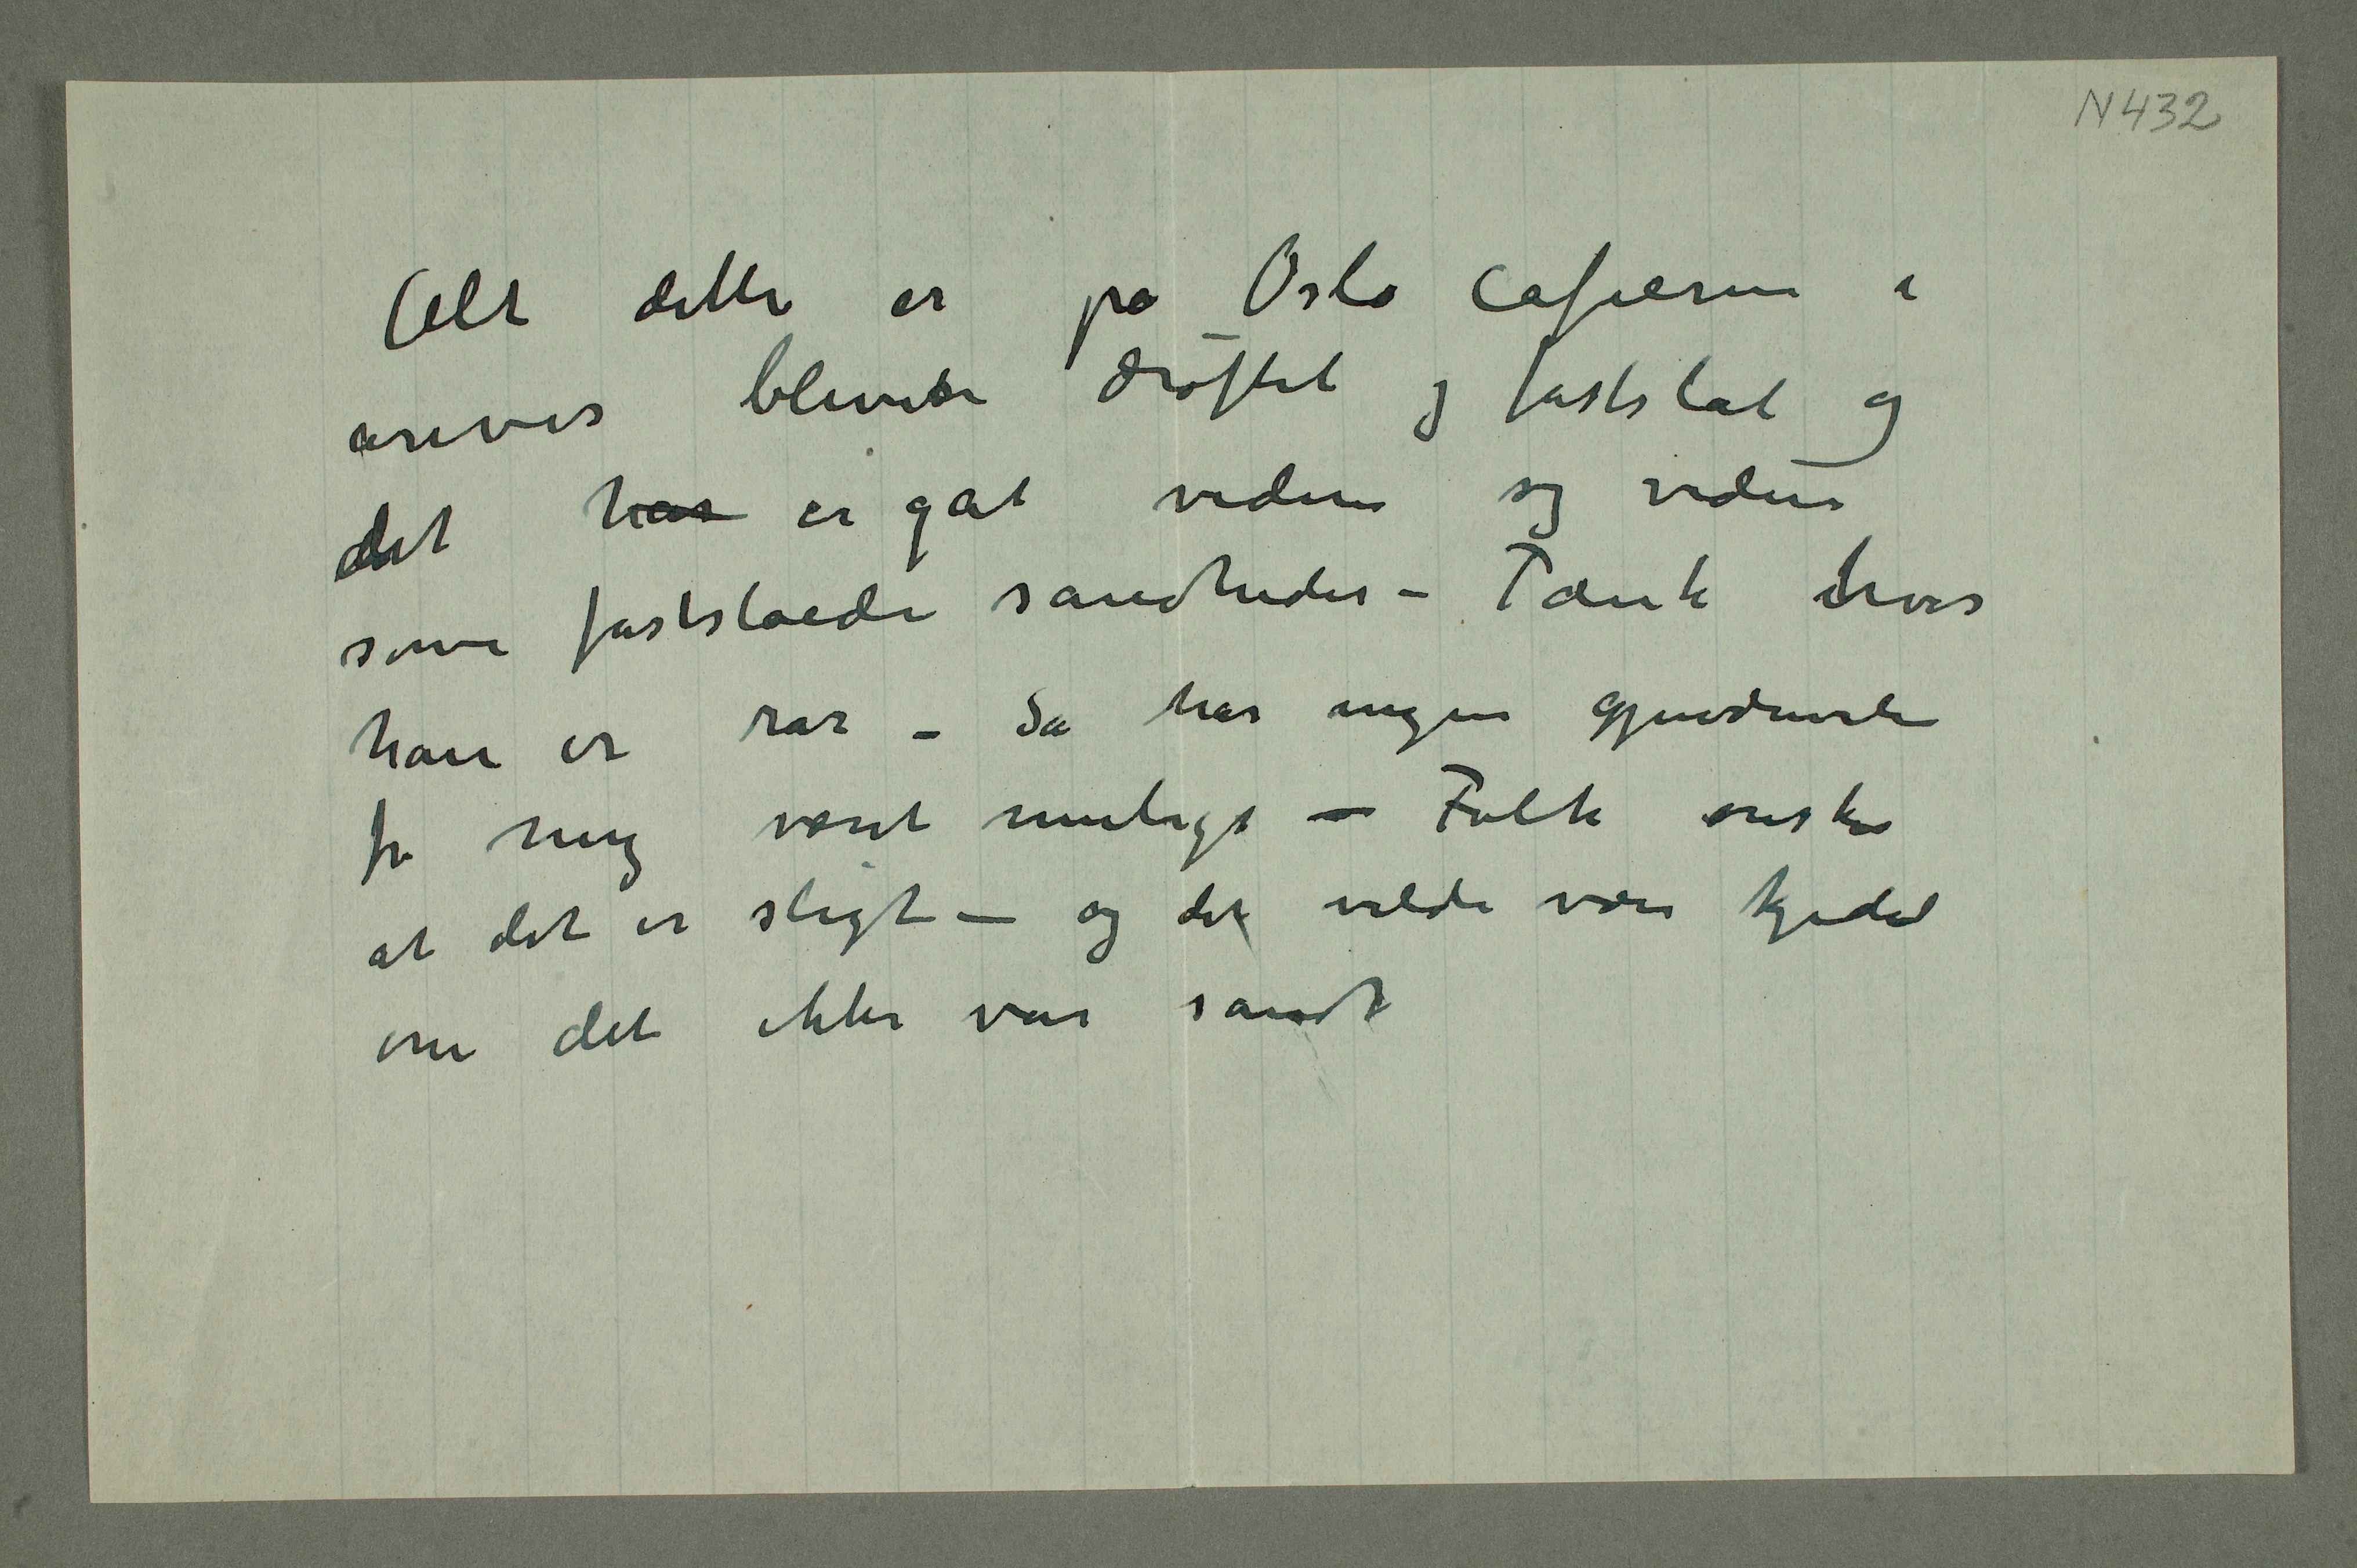 N 432
Alt dette er på Oslo Cafeerne i
årevis blevet drøftet og fastslåt og
det har er gåt videre og videre
som fastslåede sandheder – Tænk hvis
han er rar – Så har ingen gjendrivelse
fra mig været muligt – Folk ønsker
at det er sligt – og det vilde være kjedel
om det ikke var sandt